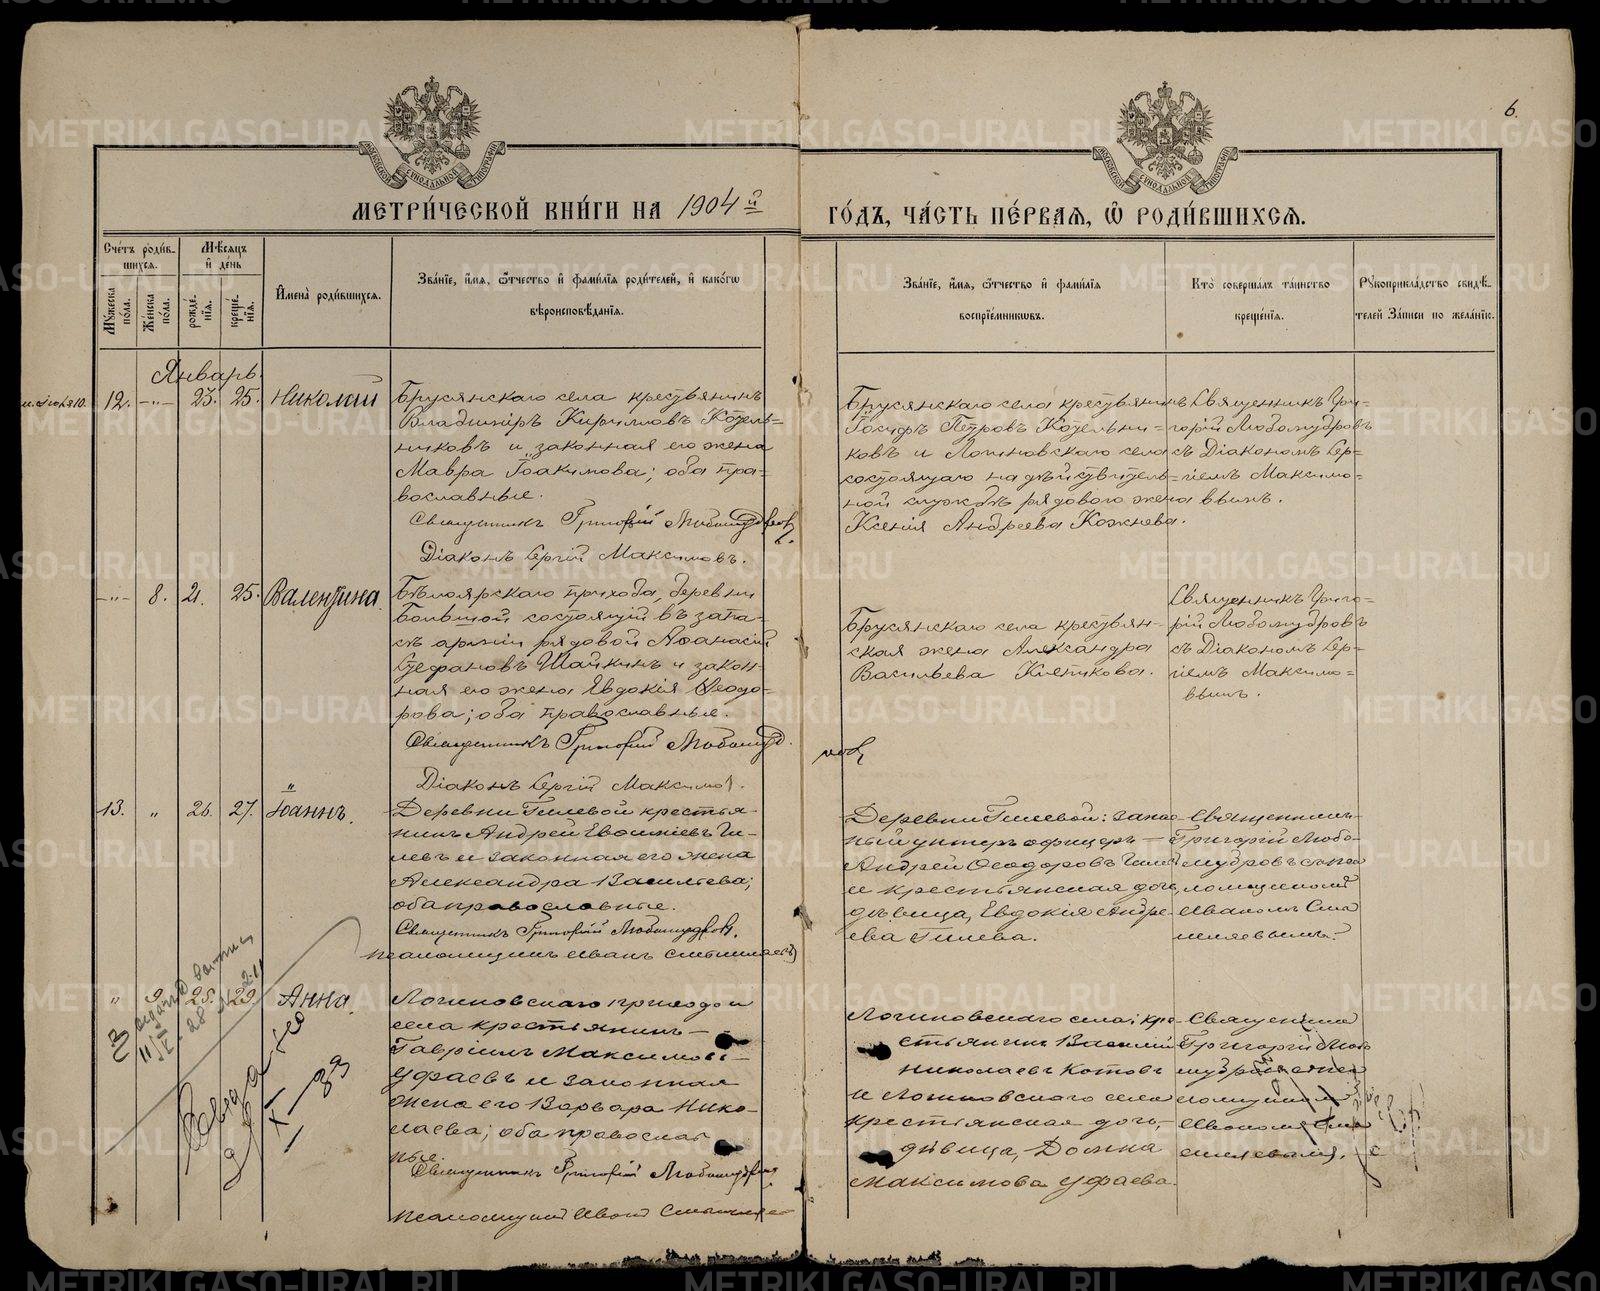 6.
МЕТРИ́ЧЕСКОЙ КНИ́ГИ НА 1904 й
ГО́ДЪ, ЧА́СТЬ ПЕ́РВАѦ, Ѡ҆ РОДИ́ВШИХСѦ.
Сче́тъ роди́в-
шихсѧ.
Мꙋжеска по́ла.
Же́нска по́ла.
Мѣ́сѧцъ и҆ де́нь
рожде́нїѧ.
креще́нїѧ.
И҆мена̀ роди́вшихсѧ.
Зва́нїе, и҆́мѧ, ѻ҆́тчество и҆ фами́лїѧ роди́телей, и҆ како́гѡ
вѣроисповѣ́данїѧ.
Зва́нїе, и҆́мѧ, ѻ҆́тчество и҆ фами́лїѧ
воспрїе́мникѡвъ.
Кто̀ соверша́лъ та́инство
креще́нїѧ.
Рꙋкоприкла́дство свидѣ́-
телей за́писи по жела́нїю.
Январь.
12. -"- 23. 25. Николай
Брусянскаго села крестьянинъ
Владиміръ Кирилловъ Котель-
никовъ и законная его жена
Мавра Іоакимова; оба пра-
вославные.
Священникъ Григорій Любомудровъ.
Діаконъ Сергій Максимовъ.
Брусянскаго села крестьянинъ
Іосифъ Петровъ Котельни-
ковъ и Логиновскаго села
состоящаго на дѣйствитель-
ной службѣ рядового жена
Ксенія Андреева Кожнева.
Священникъ Гри-
горій Любомудровъ
съ Діакономъ Сер-
гіемъ Максимо-
вымъ.
-"- 8. 21. 25. Валентина.
Бѣлоярскаго прихода, деревни
состоящій въ запа-
съ арміи рядовой Аѳанасій
Стефановъ Шайкинъ и закон-
ная его жена Евдокія Ѳеодо-
рова; оба православные.
Священникъ Григорій Любомудровъ
Діаконъ Сергій Максимов.
Брусянскаго села крестьян-
ская жена Александра
Васильева Клепикова.
Священникъ Григо-
рій Любомудровъ
съ Діакономъ Сер-
гіемъ Максимо-
вымъ.
13. " 26. 27. Іоаннъ.
Деревни Гилевой крестья-
нинъ Андрей Евѳиміевъ Ги-
левъ и законная его жена
Александра Васильева;
оба православные.
Священникъ Григорій Любомудровъ.
псаломщикъ Иванъ
Деревни Гилевой: запас-
ный унтеръ офицеръ —
Андрей Ѳеодоровъ Гилевъ
и крестьянская дочь,
дѣвица, Евдокія Андре-
ева Гилева.
Священникъ
Григорій Любо-
мудровъ съ пса-
ломщикомъ
Иваномъ
" 9. 28. 29. Анна.
Логиновскаго прихода и
села крестьянинъ —
Гавріилъ Максимовъ —
Уфаевъ и законная
жена его Варвара Нико-
лаева; оба православ
ные.
Священникъ Григорій Любомудровъ.
псаломщикъ Иванъ
Логиновскаго села: кре-
стьянинъ Василій
Николаевъ Котовъ
и Логиновскаго села
крестьянская дочь,
дѣвица, Домна
Максимова Уфаева.
Священникъ
Григорій Любо
мудровъ съ пса
ломщикомъ
Иваномъ
METRIKI.GASO-URAL.RU